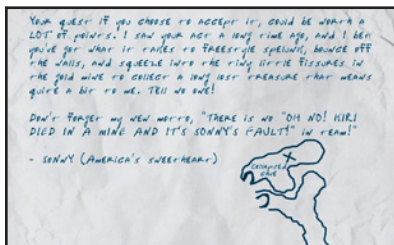 Your quest if you choose to accept it, could be worth a
LOT of points. I saw your act a long time ago, and I bet
you've got what it takes to freestyle spelunk, bounce off
the walls, and squeeze into the tiny little fissures in
the gold mine to collect a long lost treasure that means
quite a bit to me. Tell no one!
Don't forget my new motto, "There is no "OH NO! KIRI
DIED IN A MINE AND IT'S SONNY'S FAULT!" in team!"
- Sonny (America's sweetheart)
Collapsed
cave